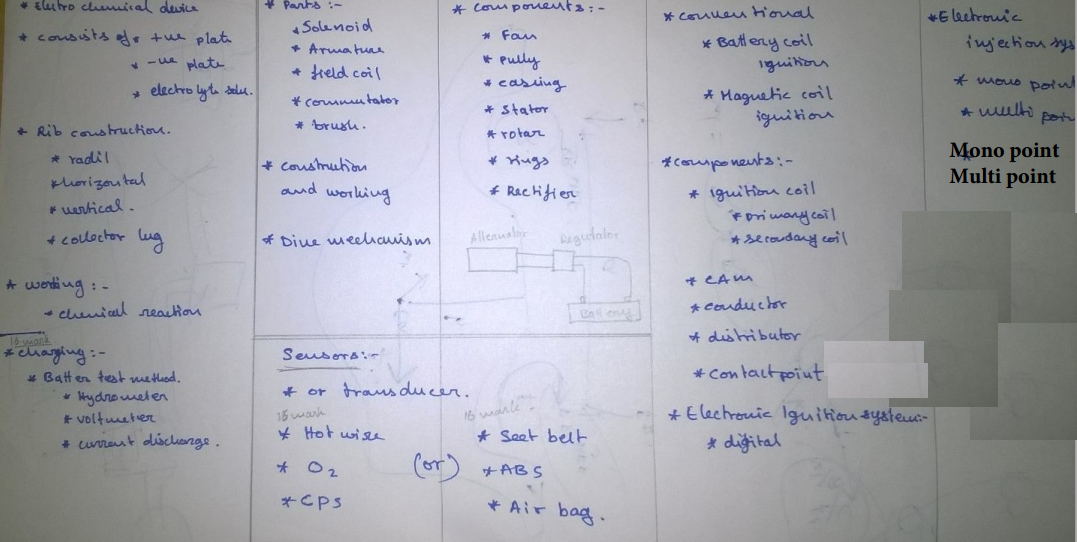 * Electro chemical device
* consists of * +ve plate
* -ve plate
* electrolyte solu.
* Rib construction.
* radil
* horizontal
* vertical.
* collector lug
* working :-
* chemical reaction
15 mark
* charging :-
* Batter test method.
* Hydrometer
* voltmeter
* current discharge.
* Parts :-
* Solenoid
* Armature
* field coil
* commutator
* brush.
* constrution
and working
* Dive mechanism
* components :-
* Fan
* pully
* casing
* Stator
* rotar
* rings
* Rectifier
Altenator
Regulator
Battery
Sensors :-
* or transducer.
15 mark
* Hot wise
* O2
* CPS
(or)
15 mark
* Seat belt
* ABS
* Air bag.
* conventional
* Battery coil
ignition
* Magnetic coil
ignition
* components :-
* ignition coil
* primary coil
* secondary coil
* CAM
* conductor
* distributor
* contact point
* Electronic Ignition system :-
* digital
* Electronic
injection sys
* mono point
* multi poin
Mono point
Multi point